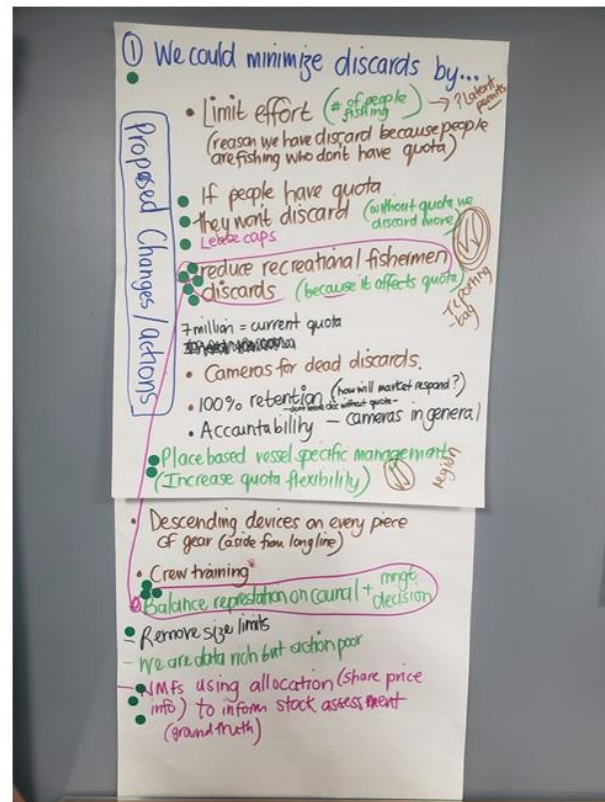 ① We could minimize discards by...
Proposed Changes/actions
• Limit effort (# of people fishing) → ? Latent permits
(reason we have discard because people
are fishing who dont have quota)
If people have quota
they won't discard (without quota we discard more)
Lease caps
reduce recreational fishermen
discards (because it affects quota)
reporting
-tag
7 million = current quota
• Cameras for dead discards.
• 100% retention (how will market respond?)
without quota-
• Accountability - cameras in general
Place based vessel specific management
(Increase quota flexibility)
region
• Descending devices on every piece
of gear (aside from longline)
• Crew training
Balance represtation on council + mngt decision
- Remove size limits
- We are data rich but action poor
- NMFs using allocation (share price
info) to inform stock assessment
(ground truth)